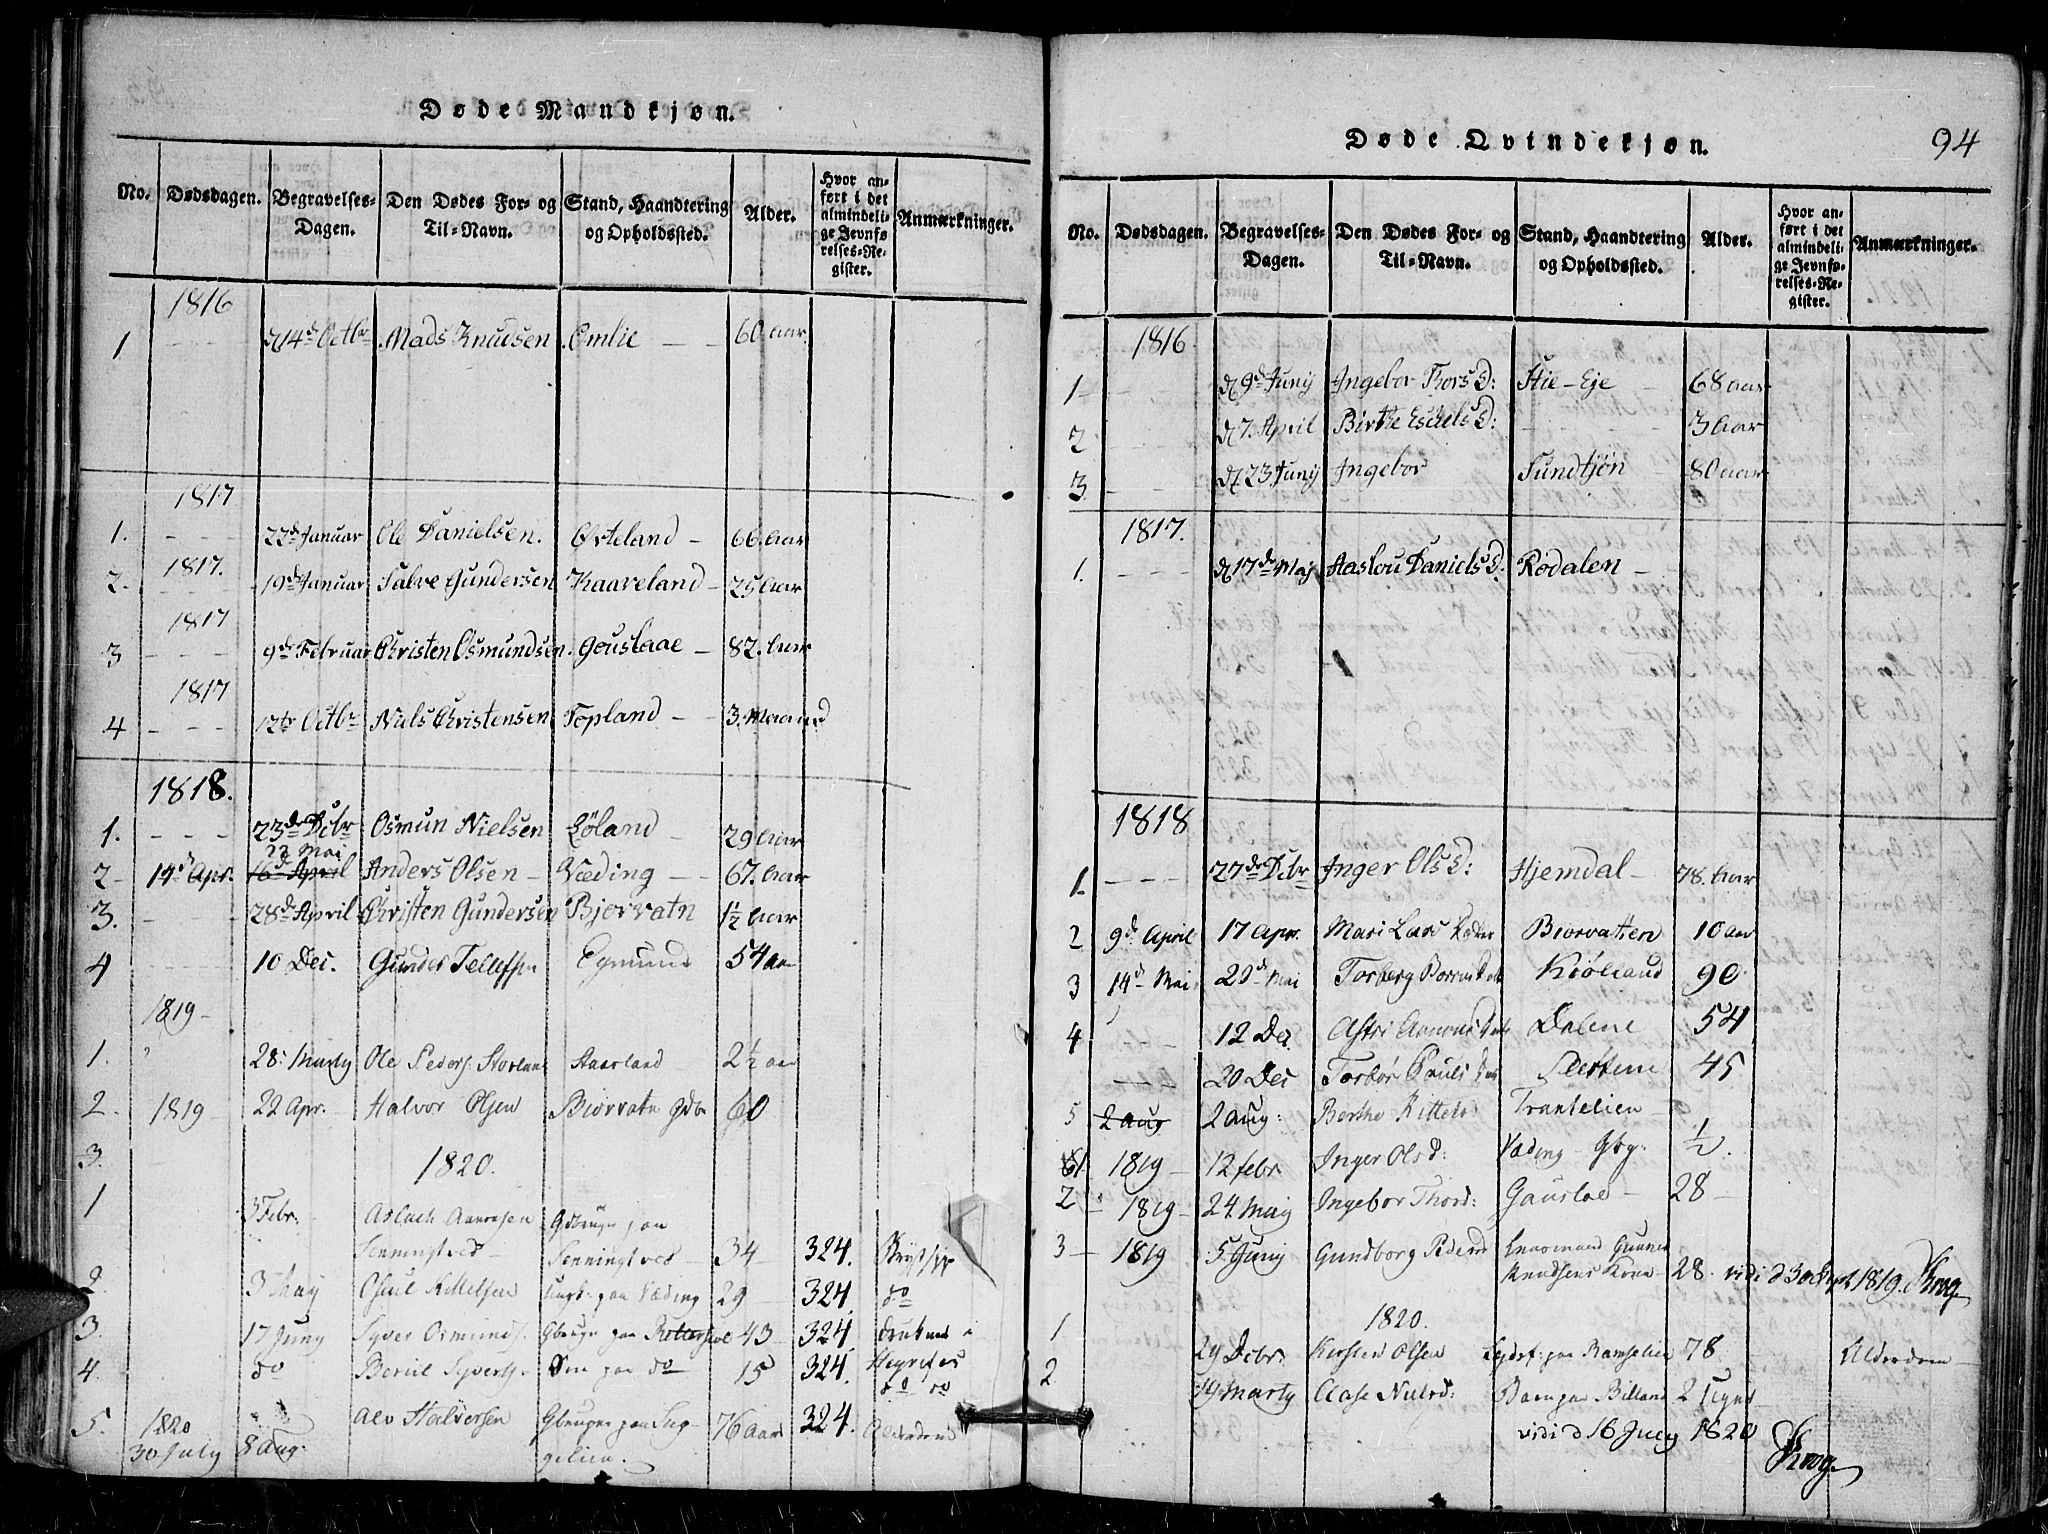 Døde Mandkjøn.
No. Dødsdagen. Begravelses-Dagen. Den Dødes For- og Til-Navn. Stand, Haandtering og Opholdssted. Alder. Hvor anført i det almindelige Jevnførelses-Register. Anmærkninger.
1816
1 - - - d 14d Octbr Mads Knudsen Emlie - - 60 aar.
1817
1. - - - 22d Januar Ole Danielsen. Østeland - 66. Aar
1817.
2. - - - 19d Januar Salve Gundersen Kaaveland - 25 Aar
1817
3 - - - 9d Februar Christen Osmundsen. Gouslaae - 82. Aar
1817
4 - - - 12te Octbr Niels Christensen Topland - - 3. Maaned
1818.
1. - - - 23de Dcbr Osmun Nielsen Løland - 29 Aar
22 Mai
2 - 14d Apr. 16d April Anders Olsen - Væding - - 67. Aar
3. - - - 28d April Christen Gundersen Bjorvatn 1½ Aar
4 - - - 10 Dec. Gunder Tellefsen Egmund 54 aar
1819 -
1. 28. Marty Ole Peders. Storland Staarland 2½ aar
2. 1819 - 22 Apr. Halvor Olsen Biorvatn Gdb 60
3.
1820.
1 3 Febr. Aslach Aanonsen Gdbruger paa
Senningstved - Senningstved - 34 - 324.
2. 3 May Osul Kittelsen paa Væding 29 324. do
3. 17 Juny Syver Osmunds. Gbruger paa 43 - 324.
4. do Beruil Syverts. Søn paa do 15 324.
do do
5. 1820 Alv Halversen Gbruger paa Lug- 76 Aar 324. Alderdom
30 July 8 Aug. gelien.
Døde Qvindekjøn.
94
No. Dødsdagen. Begravelses-Dagen. Den Dødes For- og Til-Navn. Stand, Haandtering og Opholdssted. Alder. Hvor anført i det almindelige Jevnførelses-Register. Anmærkninger.
1816
1 - - - d 9d Juny Ingebor Thors D: Hie - Eje 68 aar
2 - - - d 7. April Birthe Eschels D: - - - 3 Aar
3 - - - d 23 Juny Ingebor Sundtjøn - 80 aar
1817.
1. - - - d 17de Maj Aaslou Daniels D: Rodalen -
1818
1. - - - 27de Dcbr Inger Ols D: Hjemdal - 78. Aar
2 9d April 17 Apr. Mari Lars Datter Biorvatten 10 aar
3 14d Mai 20d Mai Torberg Kiølland 90
4 - - - 12 De. Astri Dalene 54
- - - 20 Dec Torbor Pauls 45
5 2 aug 2 aug: Berthe Kittels Trantelien -
1 1819 - 12 febr. Inger Ols D: Væding - Gbg: ½.
2 1819 - 24. Maij Ingebor Thord: Gauslae - 28 -
3 - 1819 5 Juny Gundborg Gunner
Knudsens Kone - 28. vidi d 30 Sept 1819. Krog.
1820.
1 29 Dcbr. Kirsten Olsen paa Ramselien 78 - Alderdom -
2 19 Marty Aase Nielsd: Barn paa Billand 2 Uger
vidi d 16 July 1820
Krog.